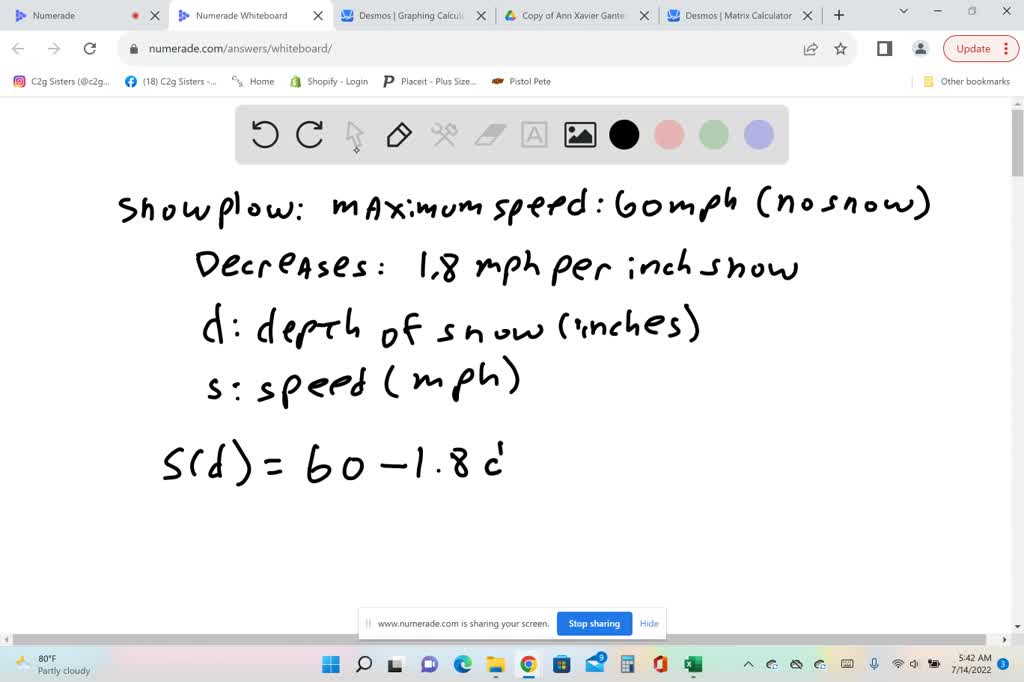 Numerade
Numerade Whiteboard
Desmos | Graphing Calcul
Copy of Ann Xavier Gante
Desmos | Matrix Calculator
numerade.com/answers/whiteboard/
Update
C2g Sisters (@c2g...
(18) C2g Sisters -...
Home
Shopify - Login
Placeit - Plus Size...
Pistol Pete
Other bookmarks
A
Snowplow: mAximum speed: 60mph (no snow)
DecreAses: 1.8 mph per inch snow
d: depth of snow (inches)
s: speed (mph)
S(d) = 60 - 1.8 d
www.numerade.com is sharing your screen.
Stop sharing
Hide
80°F
Partly cloudy
9
5:42 AM
7/14/2022
3